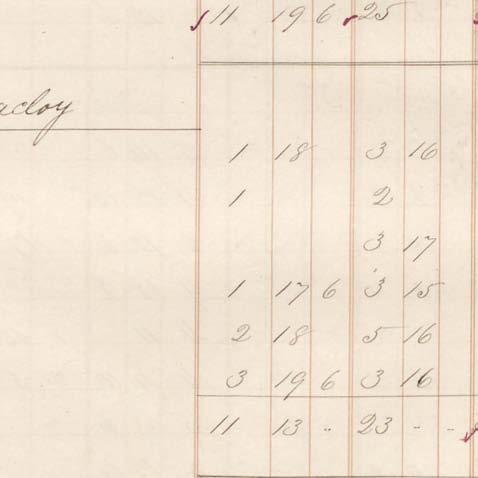 11 19 6 25
1 18 3 16
1 2
3 17
1 17 6 3 15
2 18 5 16
3 19 6 3 16
11 13 .. 23 - -